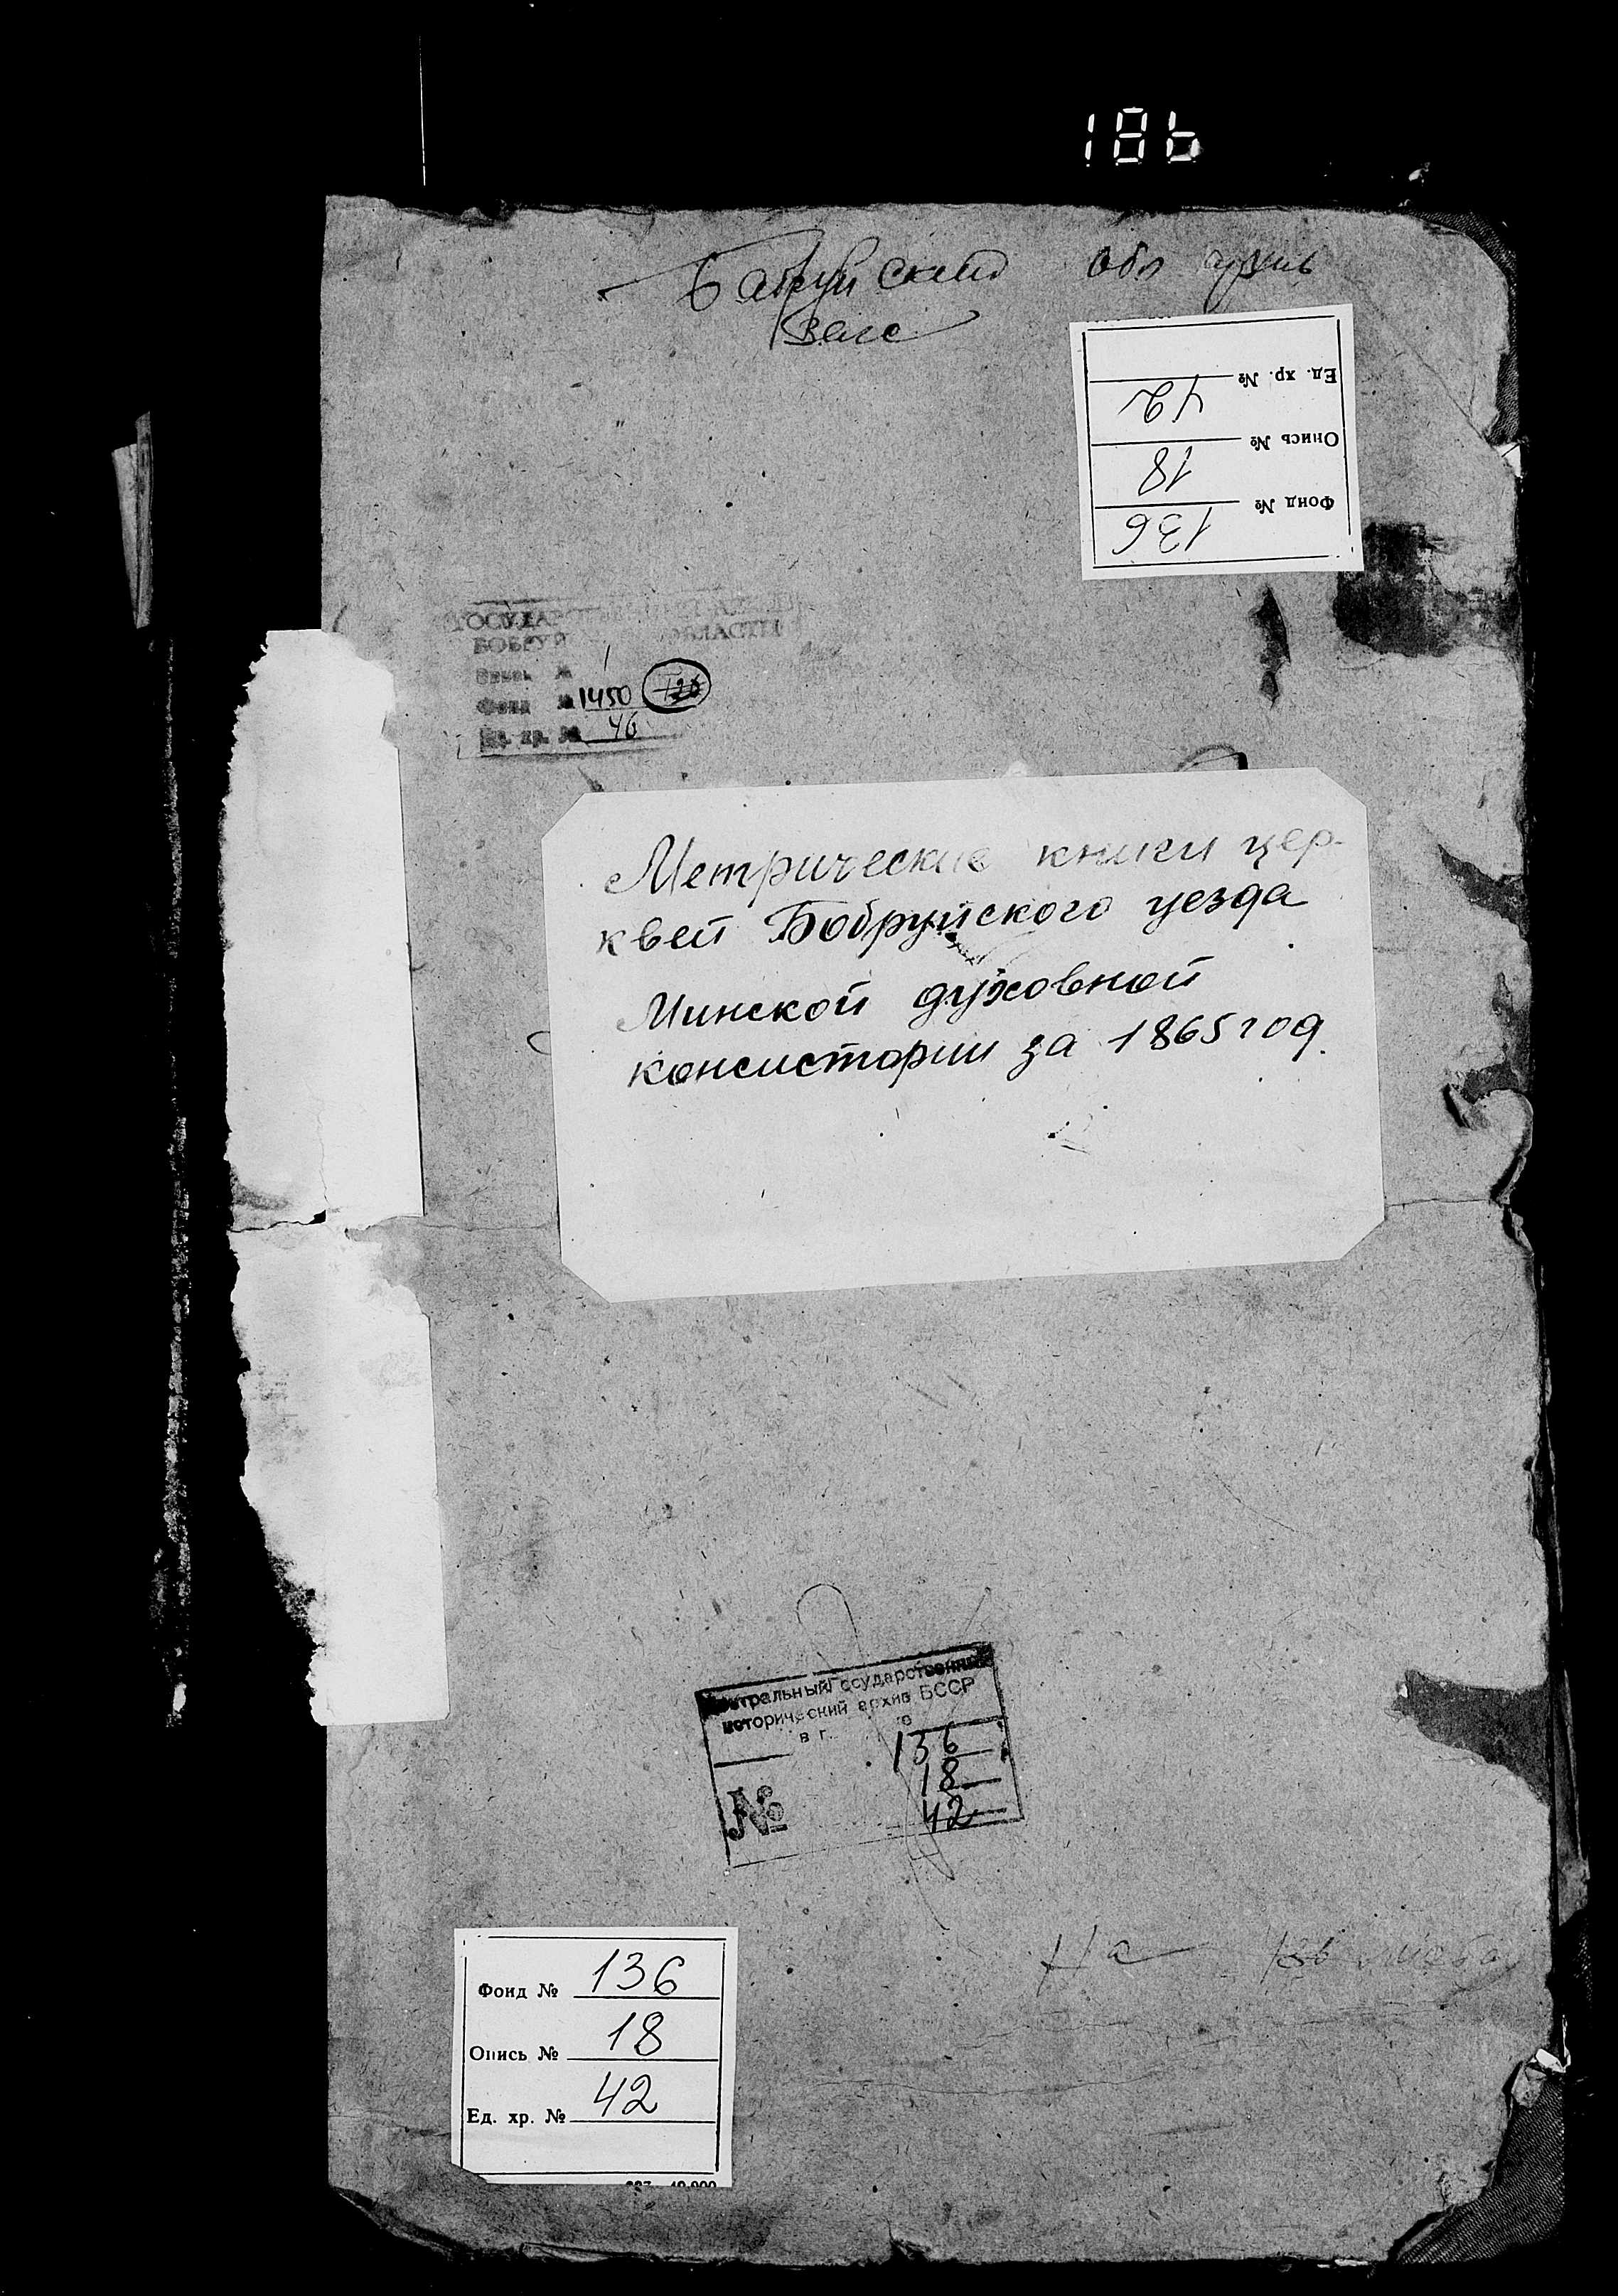 186
Бабруйский Обл архив
Загс
Ед. хр. № 42
Опись № 18
Фонд № 136
ГОСУДАР
БОБРУЙ ОБЛАСТИ
Фонд № 1450
Ед. хр. № 46
Метрические книги цер-
квей Бобруйского уезда
Минской духовной
консистории за 1865 год.
Центральный Государственный
исторический архив БССР
в г.
136
18
№ 42
На
Фонд № 136
Опись № 18
Ед. хр. № 42